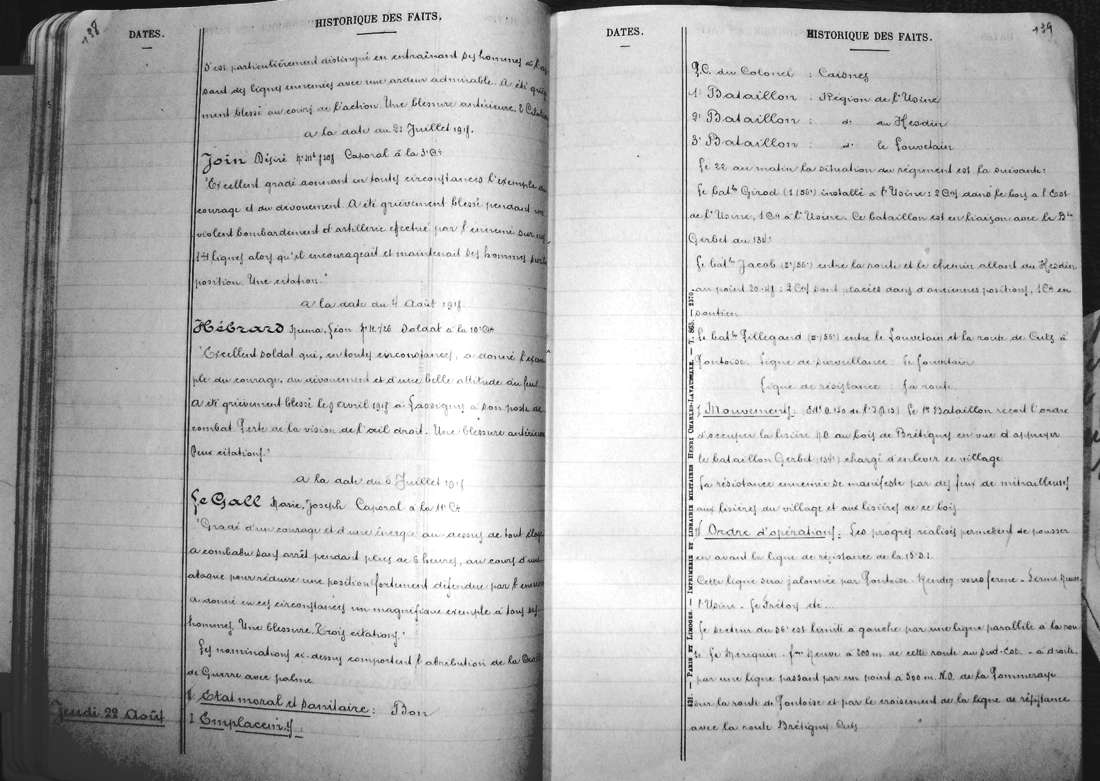 138
DATES.
HISTORIQUE DES FAITS.
s'est particulièrement distingué en entraînant ses hommes à l'as
saut des lignes ennemies avec une ardeur admirable. A été griève
ment blessé au cours de l'action. Une blessure antérieure. 2 Citations
à la date du 21 Juillet 1918.
Join Désiré Caporal à la 3e Cie
"Excellent gradé donnant en toutes circonstances l'exemple du
courage et du dévouement. A été grièvement blessé pendant un
violent bombardement d'artillerie effectué par l'ennemi sur nos
1ères lignes alors qu'il encourageait et maintenait ses hommes sur la
position. Une citation."
à la date du 4 Août 1918
Hébrard Numa, Léon Soldat à la 10e Cie
"Excellent soldat qui, en toutes circonstances, a donné l'exem
ple du courage, du dévouement et d'une belle attitude au feu.
A été grièvement blessé le 9 avril 1918 à Lassigny à son poste de
combat Perte de la vision de l'œil droit. Une blessure antérieure
Deux citations."
à la date du 6 Juillet 1918
Le Gall Marie, Joseph Caporal à la 11e Cie
"Gradé d'un courage et d'une énergie au dessus de tout éloge
a combattu sans arrêt pendant plus de 6 heures, au cours d'une
attaque pour réduire une position fortement défendue par l'ennemi
a donné en ces circonstances un magnifique exemple à tous ses
hommes. Une blessure. Trois citations."
Les nominations ci-dessus comportent l'attribution de la Croix
de Guerre avec palme
Etat moral et sanitaire : Bon
Jeudi 22 Août
Emplacemts
139
DATES.
HISTORIQUE DES FAITS.
P.C. du Colonel : Caisnes
1e Bataillon : Région de l'Usine
2e Bataillon : do du Hesdin
3e Bataillon : do le Louvetain
Le 22 au matin la situation du régiment est la suivante :
Le batln Girod (1/56e) installé à l'Usine : 2 Cies dans le bois à l'Est
de l'Usine, 1 Cie à l'Usine. Ce bataillon est en liaison avec le Bln
Gerbet du 134e
Le batln Jacob (2e/56e) entre la route et le chemin allant du Hesdin
au point : 2 Cies sont placées dans d'anciennes positions, 1 Cie en
soutien
Le batln Pillegand (3e/56e) entre le Louvetain et la route de Cuts à
Pontoise. Ligne de surveillance : le Louvetain
Ligne de résistance : La route.
Mouvements. Le 1er Bataillon reçoit l'ordre
d'occuper la lisière N.O. du bois de Brétigny en vue d'appuyer
le bataillon Gerbet (134e) chargé d'enlever ce village
La résistance ennemie se manifeste par des feux de mitrailleuses
aux lisières du village et aux lisières de ce bois.
Ordre d'opérations : Les progrès réalisés permettent de pousser
en avant la ligne de résistance de la 15e D.I.
Cette ligne sera jalonnée par Pontoise - Rendez-vous ferme - Ferme Neuve
l'Usine - Le Prétoy etc...
Le secteur du 56e est limité à gauche par une ligne parallèle à la rou
te Le Meriquin - fme Neuve à 200 m. de cette route au Sud-Est - à droite
par une ligne passant par un point à 500 m. N.O. de la Pommeraye
sur la route de Pontoise et par le croisement de la ligne de résistance
avec la route Brétigny Cuts
431. — PARIS ET LIMOGES. — IMPRIMERIE ET LIBRAIRIE MILITAIRES HENRI CHARLES-LAVAUZELLE. — T. 863. — 2370.